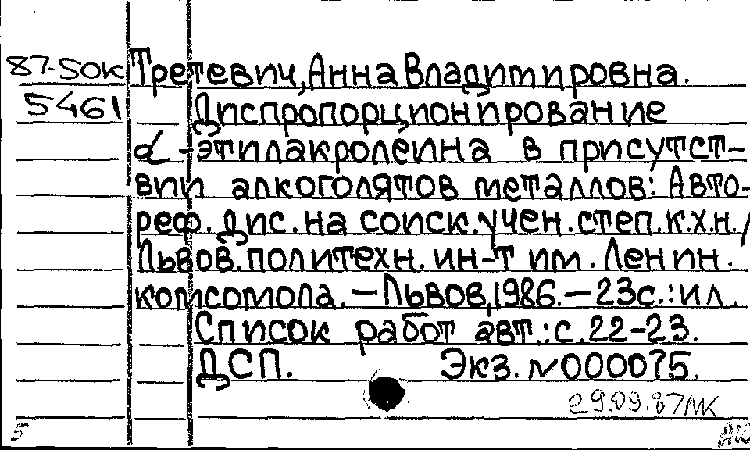 87-5ОК Третевич, Анна Владимировна.
5461 Диспропорционирование
α-этилакролеина в присутст-
вии алкоголятов металлов: Авто-
реф. дис. на соиск. учен. степ. к.х.н./
Львов. политехн. ин-т им. Ленин.
комсомола. — Львов, 1986. — 23с.: ил.
Список работ авт.: с. 22-23.
ДСП. Экз. №000075.
29.09.87
5